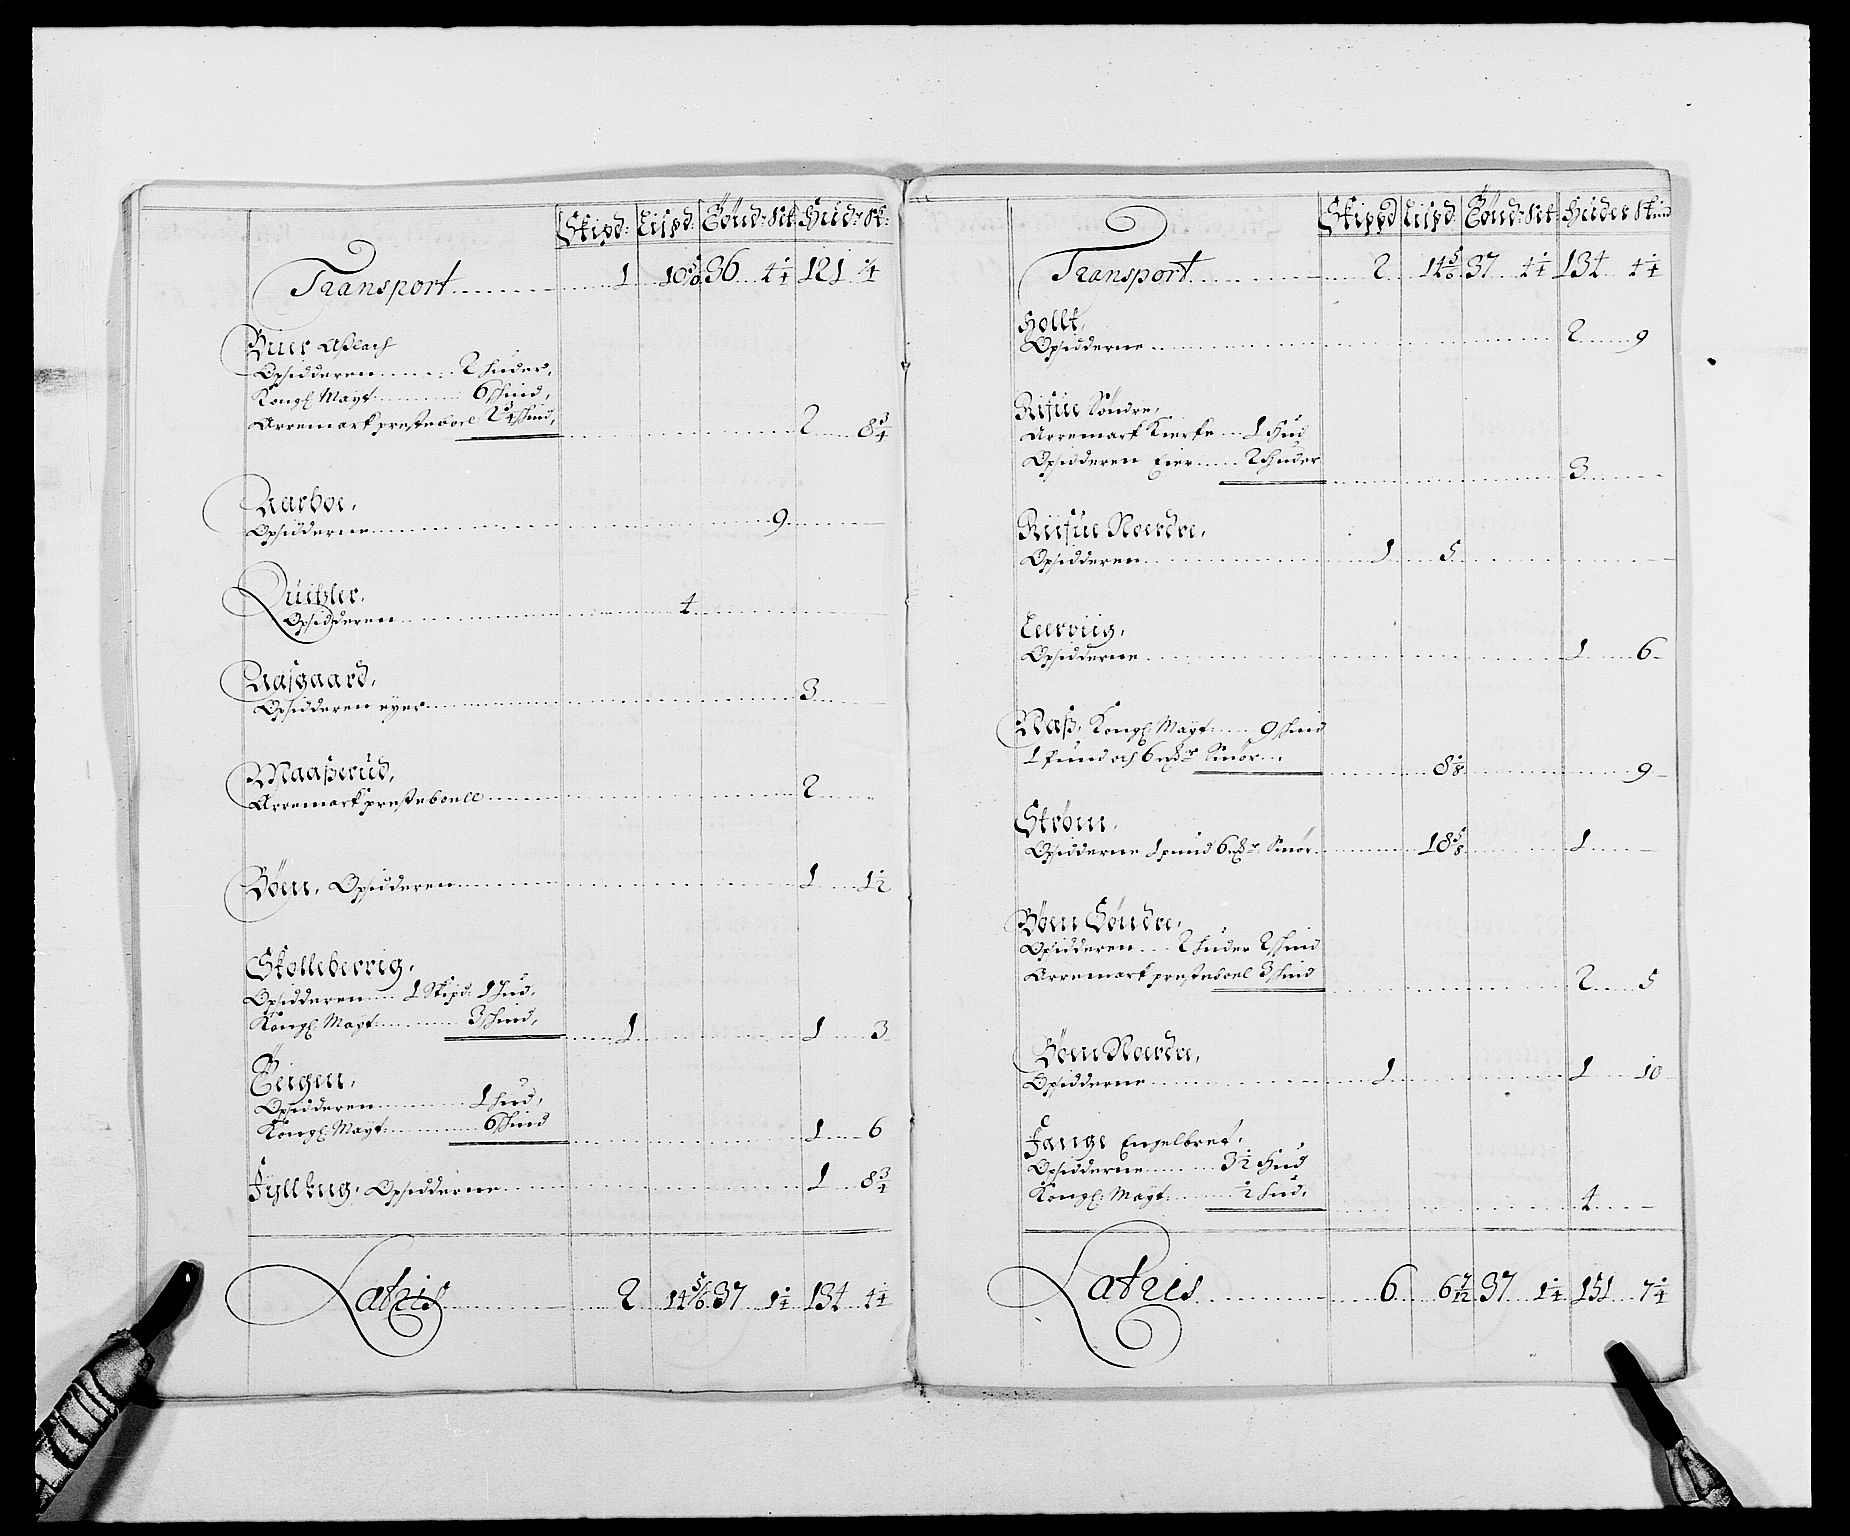 Skipd: Lispd: Tönd: St: Hud: Sk:
Transport 1 10 5/6 36 4 1/4 121 1/4
Buer Aßlach
Opsidderen 2 huder,
Kongl Mayt 6 skind,
Arremark presteboel 2 3/4 skind, 2 8 3/4
Aarboe,
Opsidderne 9
Quitzler,
Opsidderen 4
Aasgaard,
Opsidderen eyer 3
Maaßerud,
Arremark prestboell 2
Böen, Opsidderen 1 1 1/2
Skollebervig,
Opsidderen 1 Skipd: 1 hud,
Kongl: Mayt 3 skind, 1 1 3
Teigen,
Opsidderen 1 hud,
Kongl: Mayt: 6 skind 1 6
Opsidderne 1 8 3/4
Latris 2 14 5/6 37 1 1/4 134 4 1/4
Skippd Lispd: Tönd: St: Huder Skind
Transport 2 14 5/6 37 4 1/4 134 4 1/4
Hollt,
Opsidderne 2 9
Riisue Söndre,
Arremark Kierke 1 Hud
Opsidderen Eier 2 Huder 3
Riisue Noerdre,
Opsidderen 1 5
Leerviig,
Opsidderne 1 6
Naß, Kongl: Mayt 9 skind
1 pund och 6 Smör 8 5/8 9
Ström,
Opsidderne 1 pund 6 Smör 18 5/8 1
Böen Söndre,
Opsidderen 2 huder 2 skind
Arremark presteboel 3 skind 2 5
Böen Noerdre,
Opsidderne 1 1 10
Fange Engelbret,
Opsidderne 3 1/2 Hud
Kongl: Mayt 1/2 hud, 4
Latris 6 6 7/12 37 1 1/4 151 7 1/4